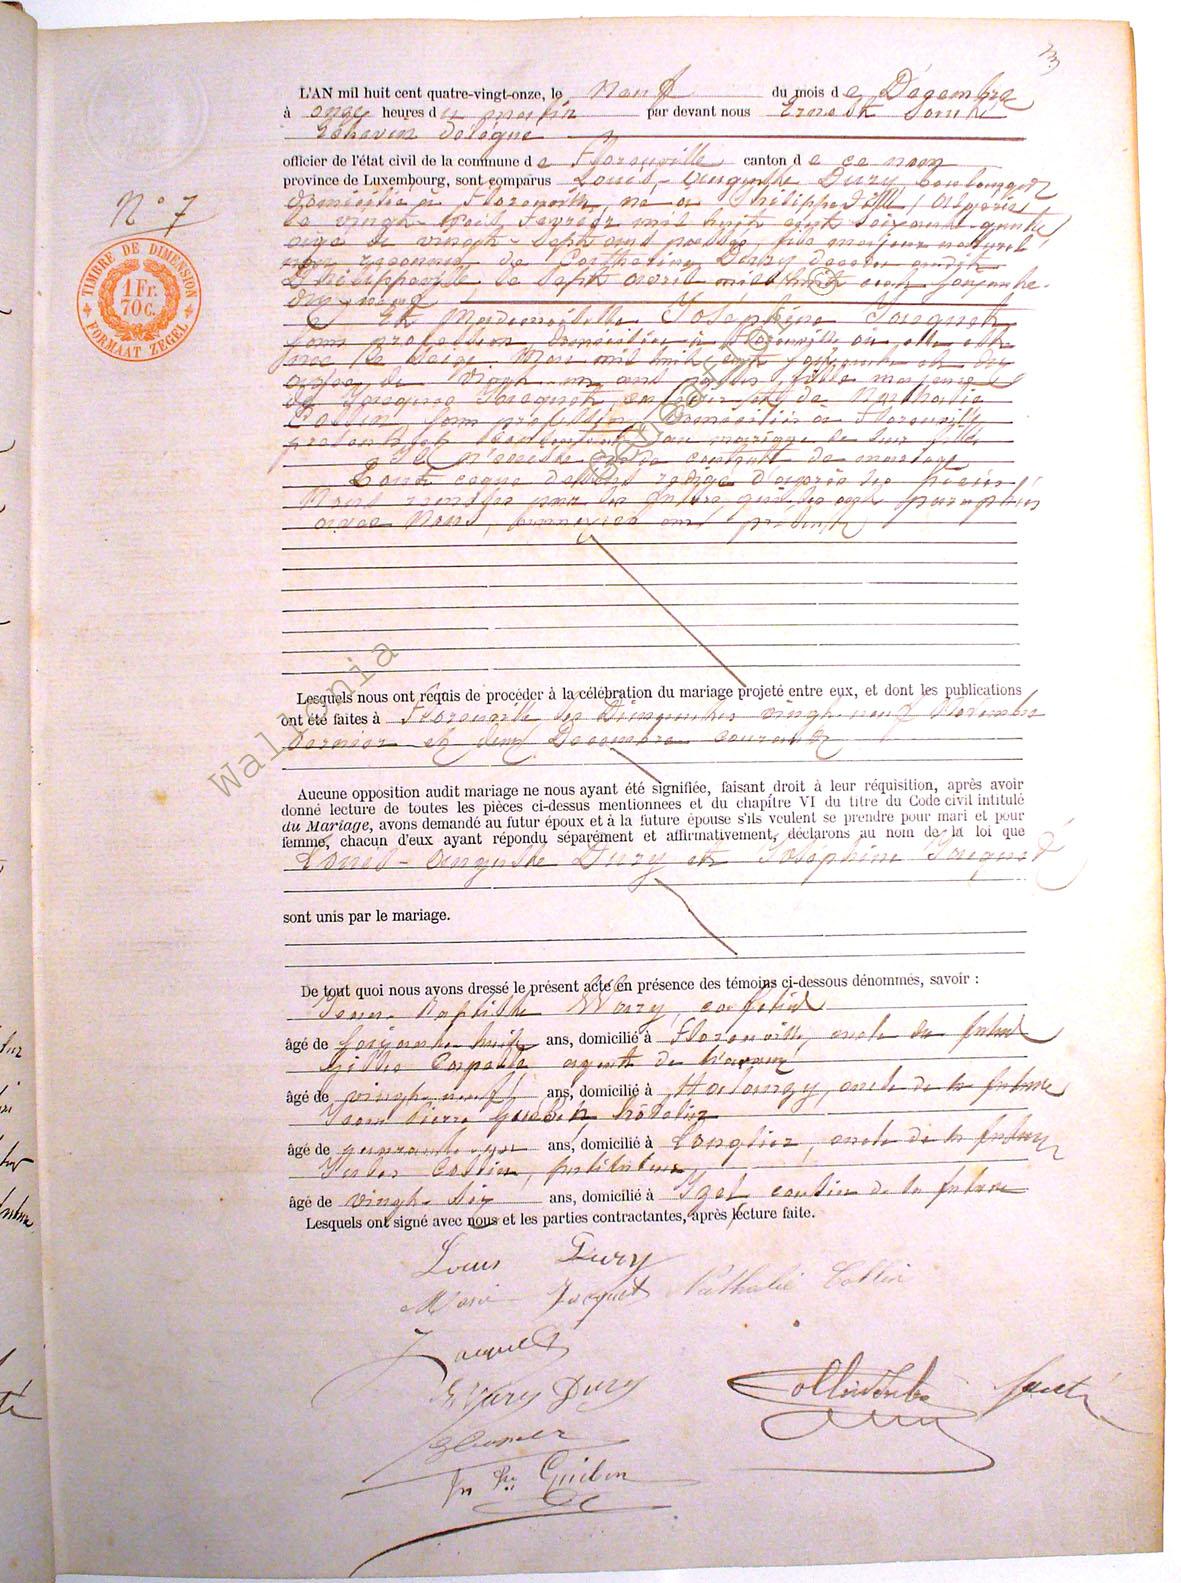 N° 7
TIMBRE DE DIMENSION
1 Fr.
70 c.
FORMAAT ZEGEL
L'AN mil huit cent quatre-vingt-onze, le neuf du mois de Décembre
à onze heures du matin par devant nous Ernest
Echevin délégué
officier de l'état civil de la commune de Florenville canton de ce nom
province de Luxembourg, sont comparus Louis-Auguste Dury boulanger
domicilié à Florenville, né à Philippeville (Algérie)
le vingt-trois février mil huit cent soixante-quatre
âgé de vingt-sept ans passés, fils majeur naturel
non reconnu de Catherine Dury décédée audit
Philippeville le sept avril mil huit cent soixante-
dix-neuf
Et Mademoiselle Joséphine Jacquet
sans profession, domiciliée à Florenville où elle est
née le seize Mars mil huit cent soixante et dix
âgée de vingt-un ans passés, fille majeure
de Jacquet, et de Nathalie
Collin, sans profession, domiciliés à Florenville
présents et consentants au mariage de leur fille
Il n'existe pas de contrat de mariage
Tout ce que dessus rédigé d'après les pièces
Nous remises par les futurs, qui les ont paraphées
avec Nous, annexées aux présentes
Lesquels nous ont requis de procéder à la célébration du mariage projeté entre eux, et dont les publications
ont été faites à Florenville les Dimanches vingt-neuf Novembre
dernier et six Décembre courant
Aucune opposition audit mariage ne nous ayant été signifiée, faisant droit à leur réquisition, après avoir
donné lecture de toutes les pièces ci-dessus mentionnees et du chapitre VI du titre du Code civil intitulé
du Mariage, avons demandé au futur époux et à la future épouse s'ils veulent se prendre pour mari et pour
femme, chacun d'eux ayant répondu séparément et affirmativement, déclarons au nom de la loi que
Louis-Auguste Dury et Joséphine Jacquet
sont unis par le mariage.
De tout quoi nous avons dressé le présent acte en présence des témoins ci-dessous dénommés, savoir :
Jean-Baptiste Wary,
âgé de soixante-huit ans, domicilié à Florenville, oncle du futur
agent de
âgé de vingt-neuf ans, domicilié à oncle de la future
Jean Pierre hôtelier
âgé de quarante ans, domicilié à Longlier, oncle de la future
Jules Collin, Instituteur,
âgé de vingt-six ans, domicilié à Izel cousin de la future
Lesquels ont signé avec nous et les parties contractantes, après lecture faite.
Louis Dury
Marie Jacquet Nathalie Collin
Jacquet
Wary Dury
wallonia